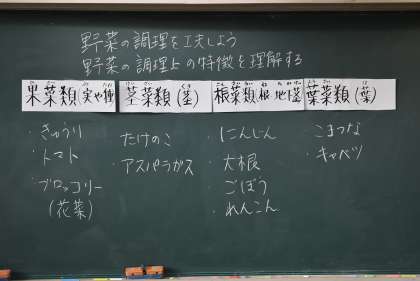 野菜の調理を工夫しよう
野菜の調理上の特徴を理解する
果菜類(実や種)
茎菜類(茎)
根菜類(根 地下茎)
葉菜類(葉)
・きゅうり
・トマト
・ブロッコリー
(花菜)
たけのこ
アスパラガス
・にんじん
・大根
・ごぼう
・れんこん
・こまつな
・キャベツ